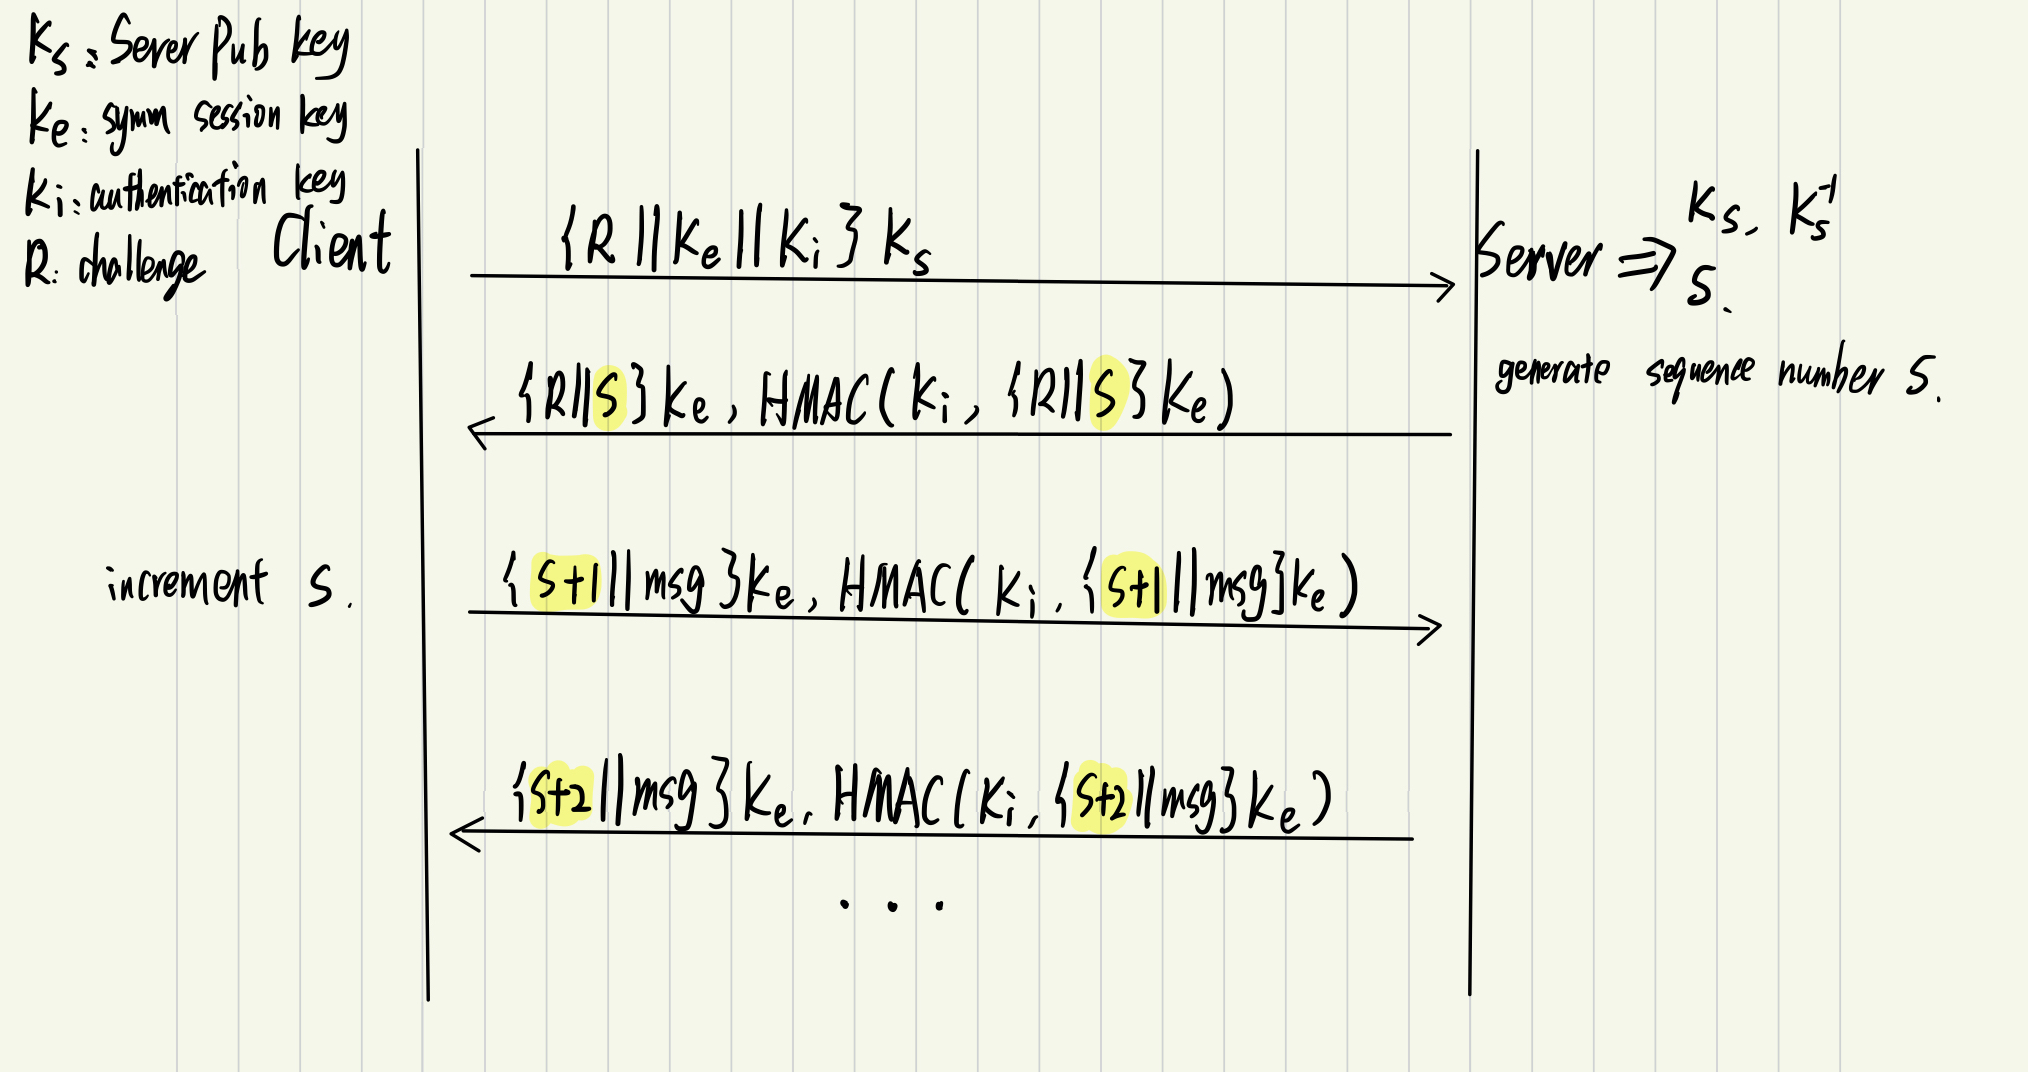 Ks: Server Pub key
Ke: symm session key
Ki: authentication key
R: challenge
Client
{R || Ke || Ki} Ks
Server ⇒ Ks, Ks⁻¹
S.
{R||S}Ke, HMAC(Ki, {R||S}Ke)
generate sequence number S.
increment S.
{S+1||msg}Ke, HMAC(Ki, {S+1||msg}Ke)
{S+2||msg}Ke, HMAC(Ki, {S+2||msg}Ke)
...